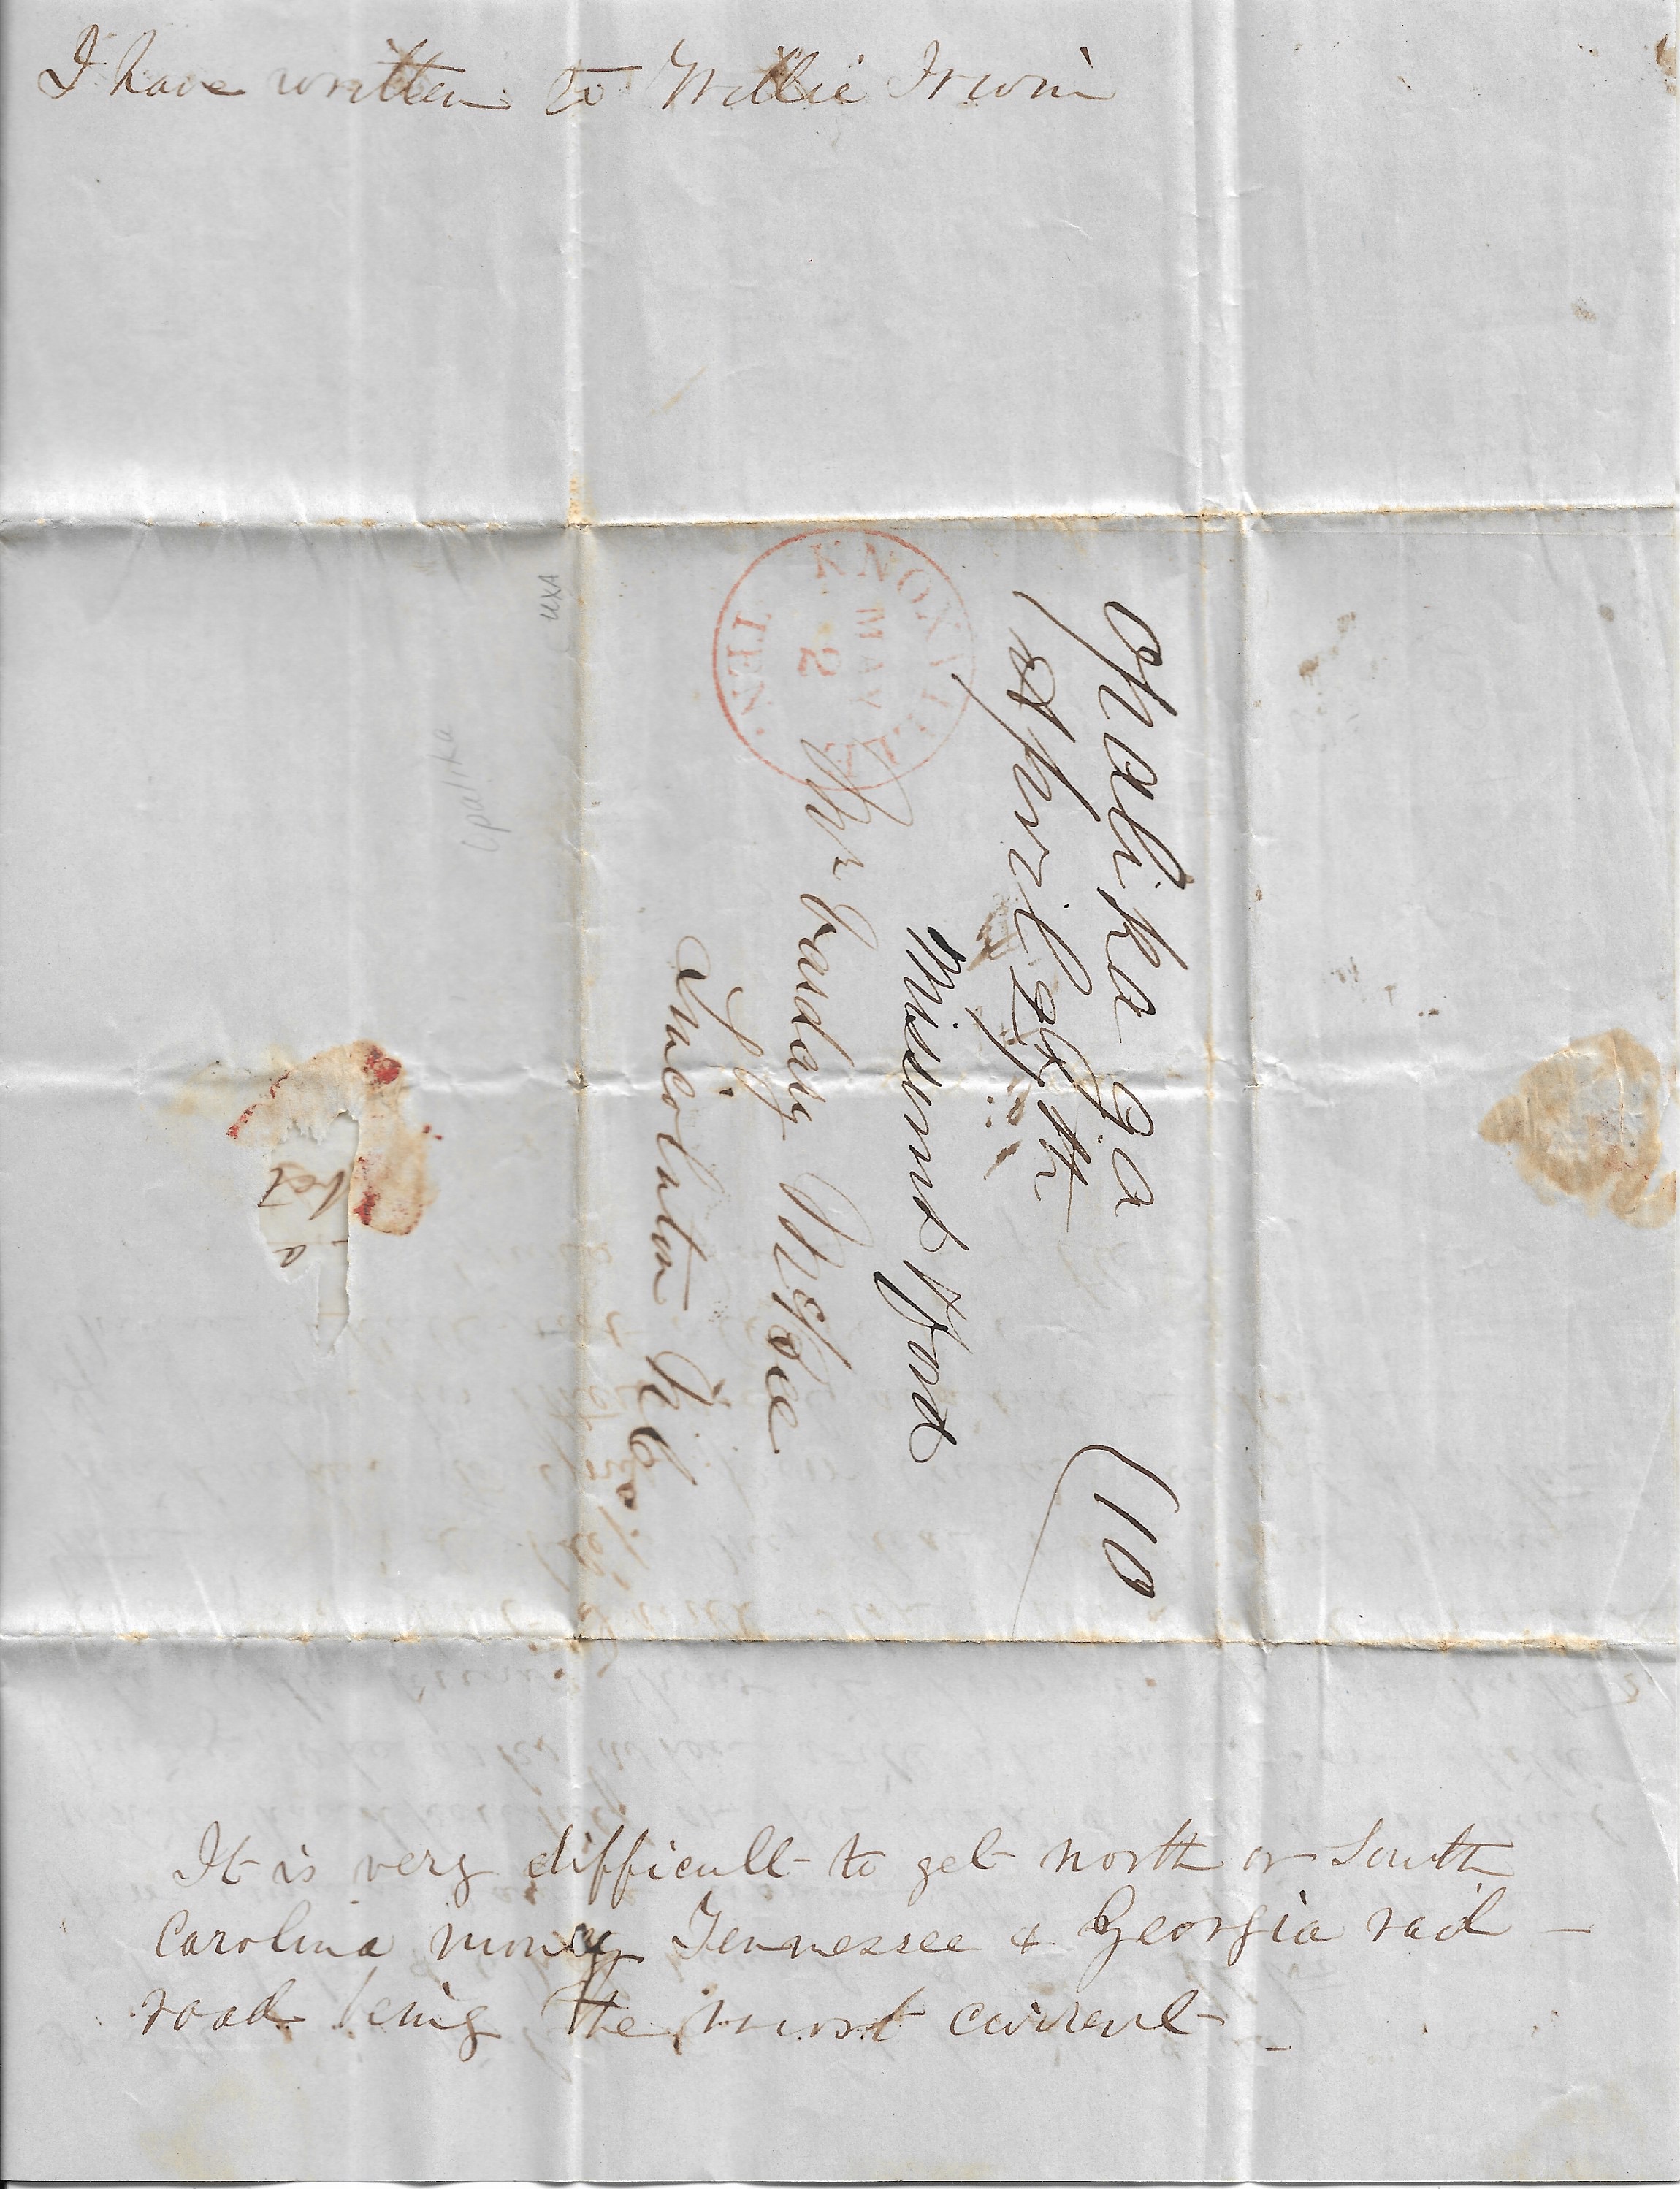 I have written to Willie Irwin
Opalika ga
April 29th
(10
Missunt & ford
Mr Vardary McBee
Lincolnton N C
KNOXVILLE
MAY
2
TEN.
Opalika
It is very difficult to get north or South
Carolina money Tennessee & Georgia rail –
road being the most current